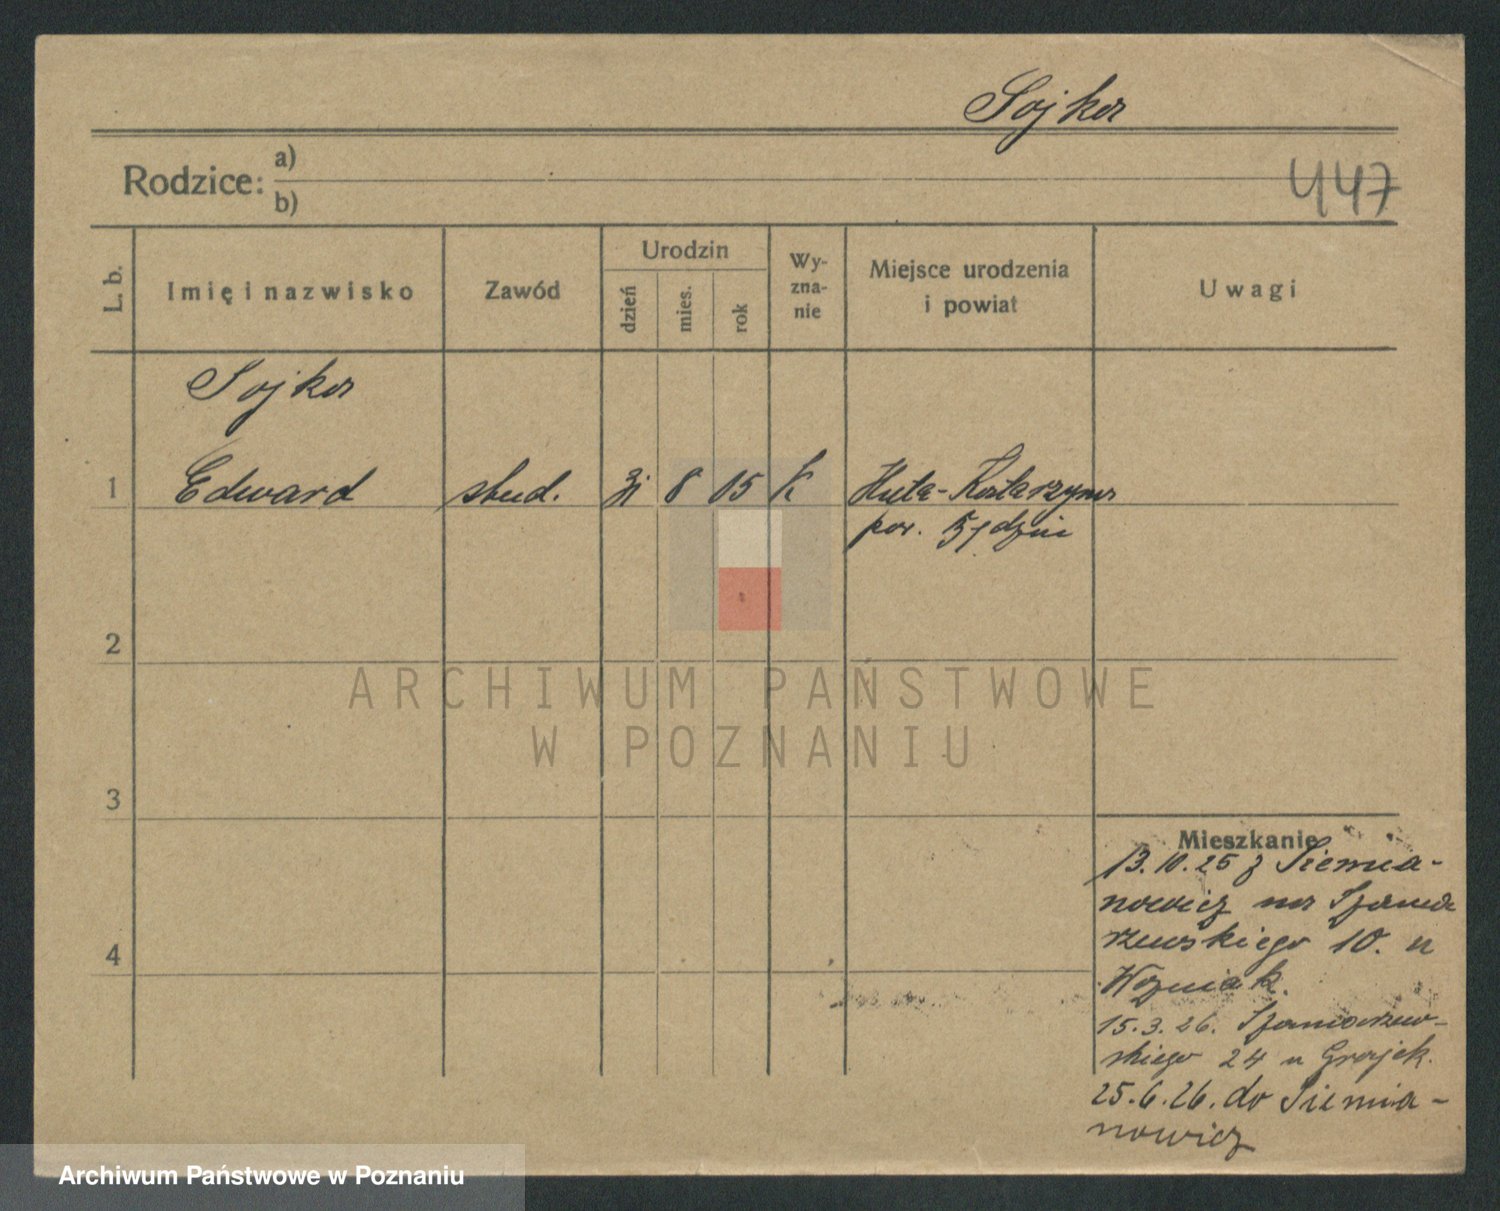 Sojka
Rodzice: a)
b)
447
L. b.
Imię i nazwisko
Zawód
Urodzin
dzień
mies.
rok
Wy-
zna-
nie
Miejsce urodzenia
i powiat
Uwagi
Sojka
1 Edward stud. 31 8 05 K Huta-Katarzyna
pow. Będzin
2
3
4
Mieszkanie
13.10.25 z Siemia-
nowicz na Szama
rzewskiego 10. u
Wozniak.
15.3.26. Szamarzew-
skiego 24 u Grajek.
25.6.26. do Siemia-
nowicz
ARCHIWUM PAŃSTWOWE
W POZNANIU
Archiwum Państwowe w Poznaniu